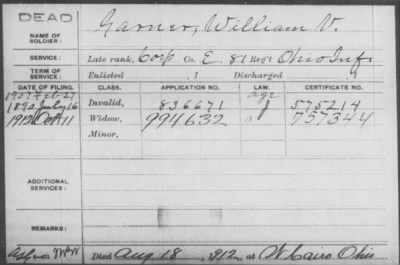 DEAD
NAME OF SOLDIER: Garner, William V.
SERVICE: Late rank, Corp Co. E, 81 Reg't Ohio Inf.
TERM OF SERVICE: Enlisted , 1 Discharged , 1
DATE OF FILING. CLASS. APPLICATION NO. LAW. CERTIFICATE NO.
1907 Feb 27 age
1890 July 16 Invalid, 836671 J 575214
1912 Oct 11 Widow, 994632 757344
Minor,
ADDITIONAL SERVICES:
REMARKS:
Died Aug 18, 1912, at W Cairo Ohio